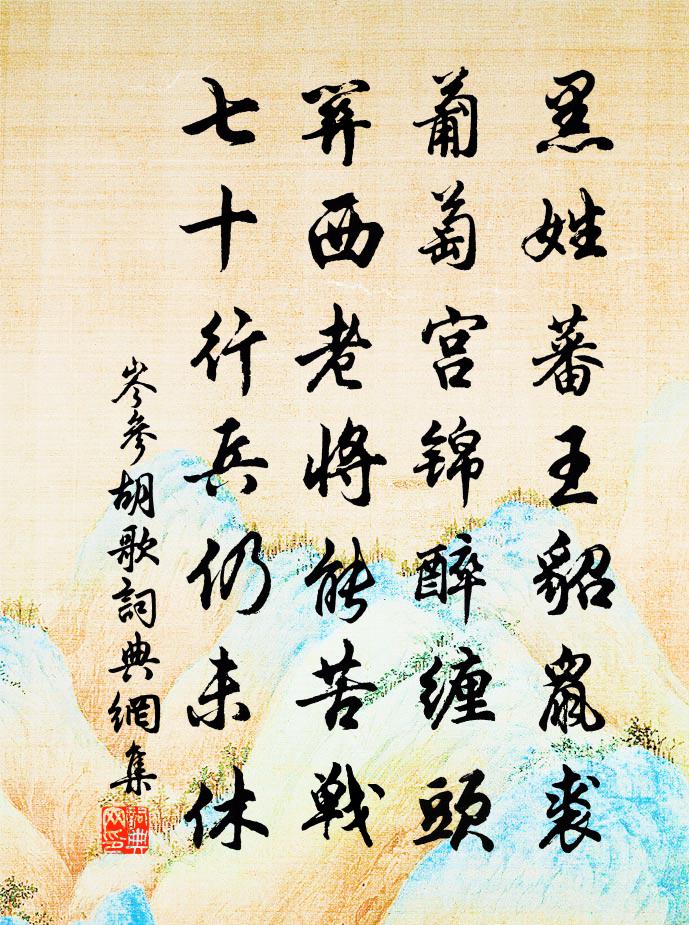 黑姓蕃王貂鼠裘
葡萄宮錦醉纏頭
關西老將能苦戰
七十行兵仍未休
岑參胡歌詞典網集
詞典网印